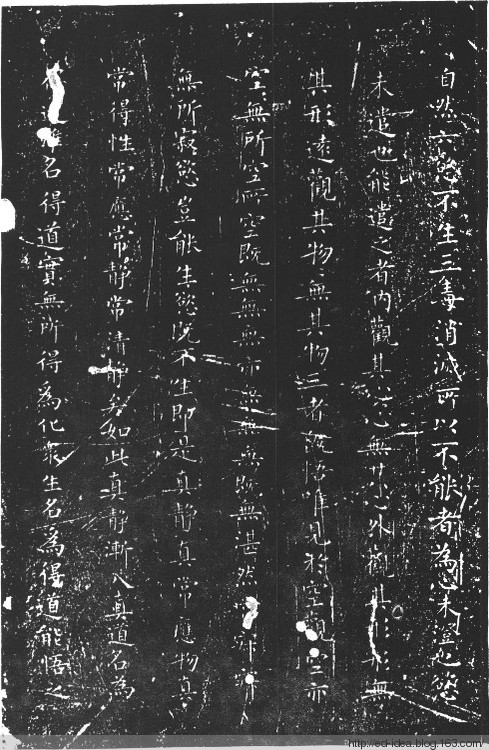 自然六慾不生三毒消滅所以不能者為心未澄也慾
未遣也能遣之者內觀其心〻無其心外觀其形〻無
其形遠觀其物〻無其物三者既悟唯見於空觀空亦
空〻無所空所空既無無無亦無無無既無湛然寂
無所寂慾豈能生慾既不生即是真靜真常應物真
常得性常應常靜常清靜矣如此真靜漸入真道名為
道雖名得道實無所得為化眾生名為得道能悟之
http://ed-idea.blog.163.com